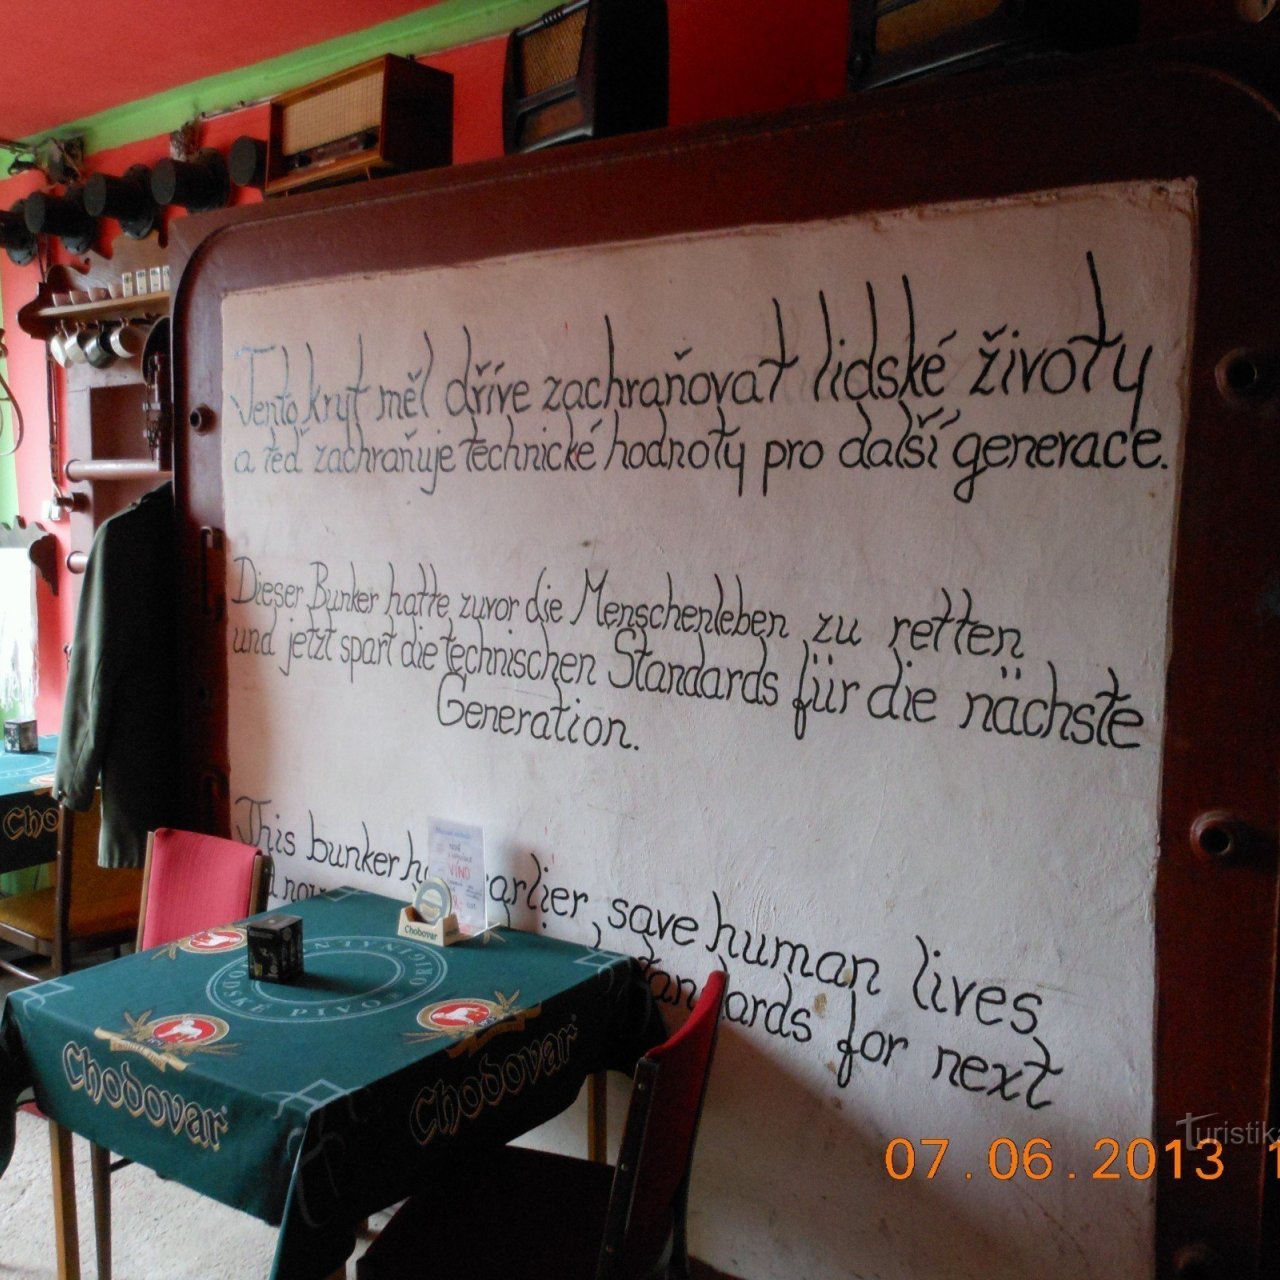 Tento kryt měl dříve zachraňovat lidské životy
a teď zachraňuje technické hodnoty pro další generace.
Dieser Bunker hatte zuvor die Menschenleben zu retten
und jetzt spart die technischen Standards für die nächste
Generation.
This bunker earlier save human lives
standards for next
VÍNO
Chobovar
ORIG
PIVO
Chodovar
Chodovar
Cho
Turistika
07.06.2013 1